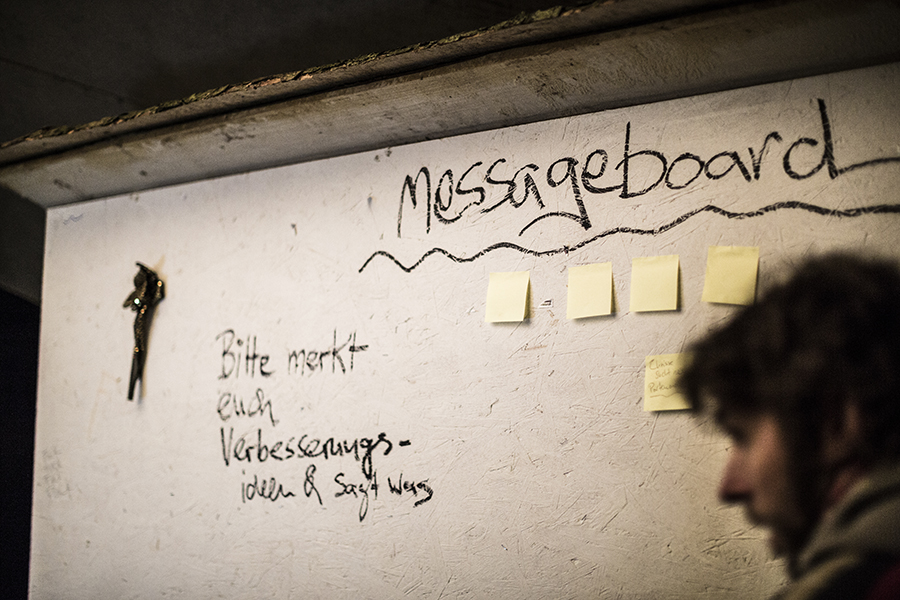 Messageboard
Bitte merkt
euch
Verbesserungs-
ideen & sagt